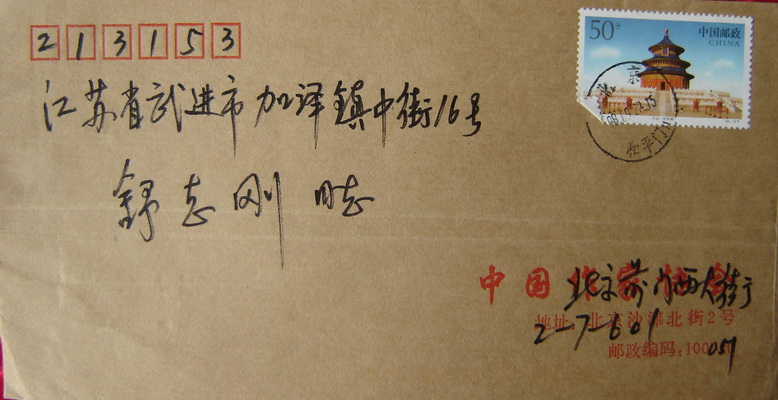 213153
50分
中国邮政
CHINA
江苏省武进市加泽镇中街16号
舒志刚 同志
北京
和平门
中国作家协会
北京前门西大街
地址:北京沙滩北街2号
2-7-601
邮政编码:100
051